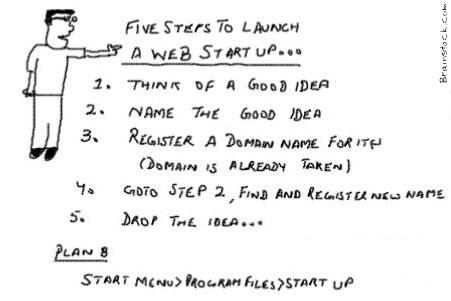 FIVE STEPS TO LAUNCH
A WEB START UP...
1. THINK OF A GOOD IDEA
2. NAME THE GOOD IDEA
3. REGISTER A DOMAIN NAME FOR IT
(DOMAIN IS ALREADY TAKEN)
4. GOTO STEP 2, FIND AND REGISTER NEW NAME
5. DROP THE IDEA...
PLAN B
START MENU>PROGRAM FILES>START UP
Brainstuck.com